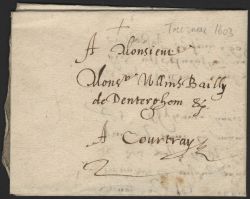 1603
A Monsieur
Monsr Willms Bailly
de Denterghem &
A Courtray